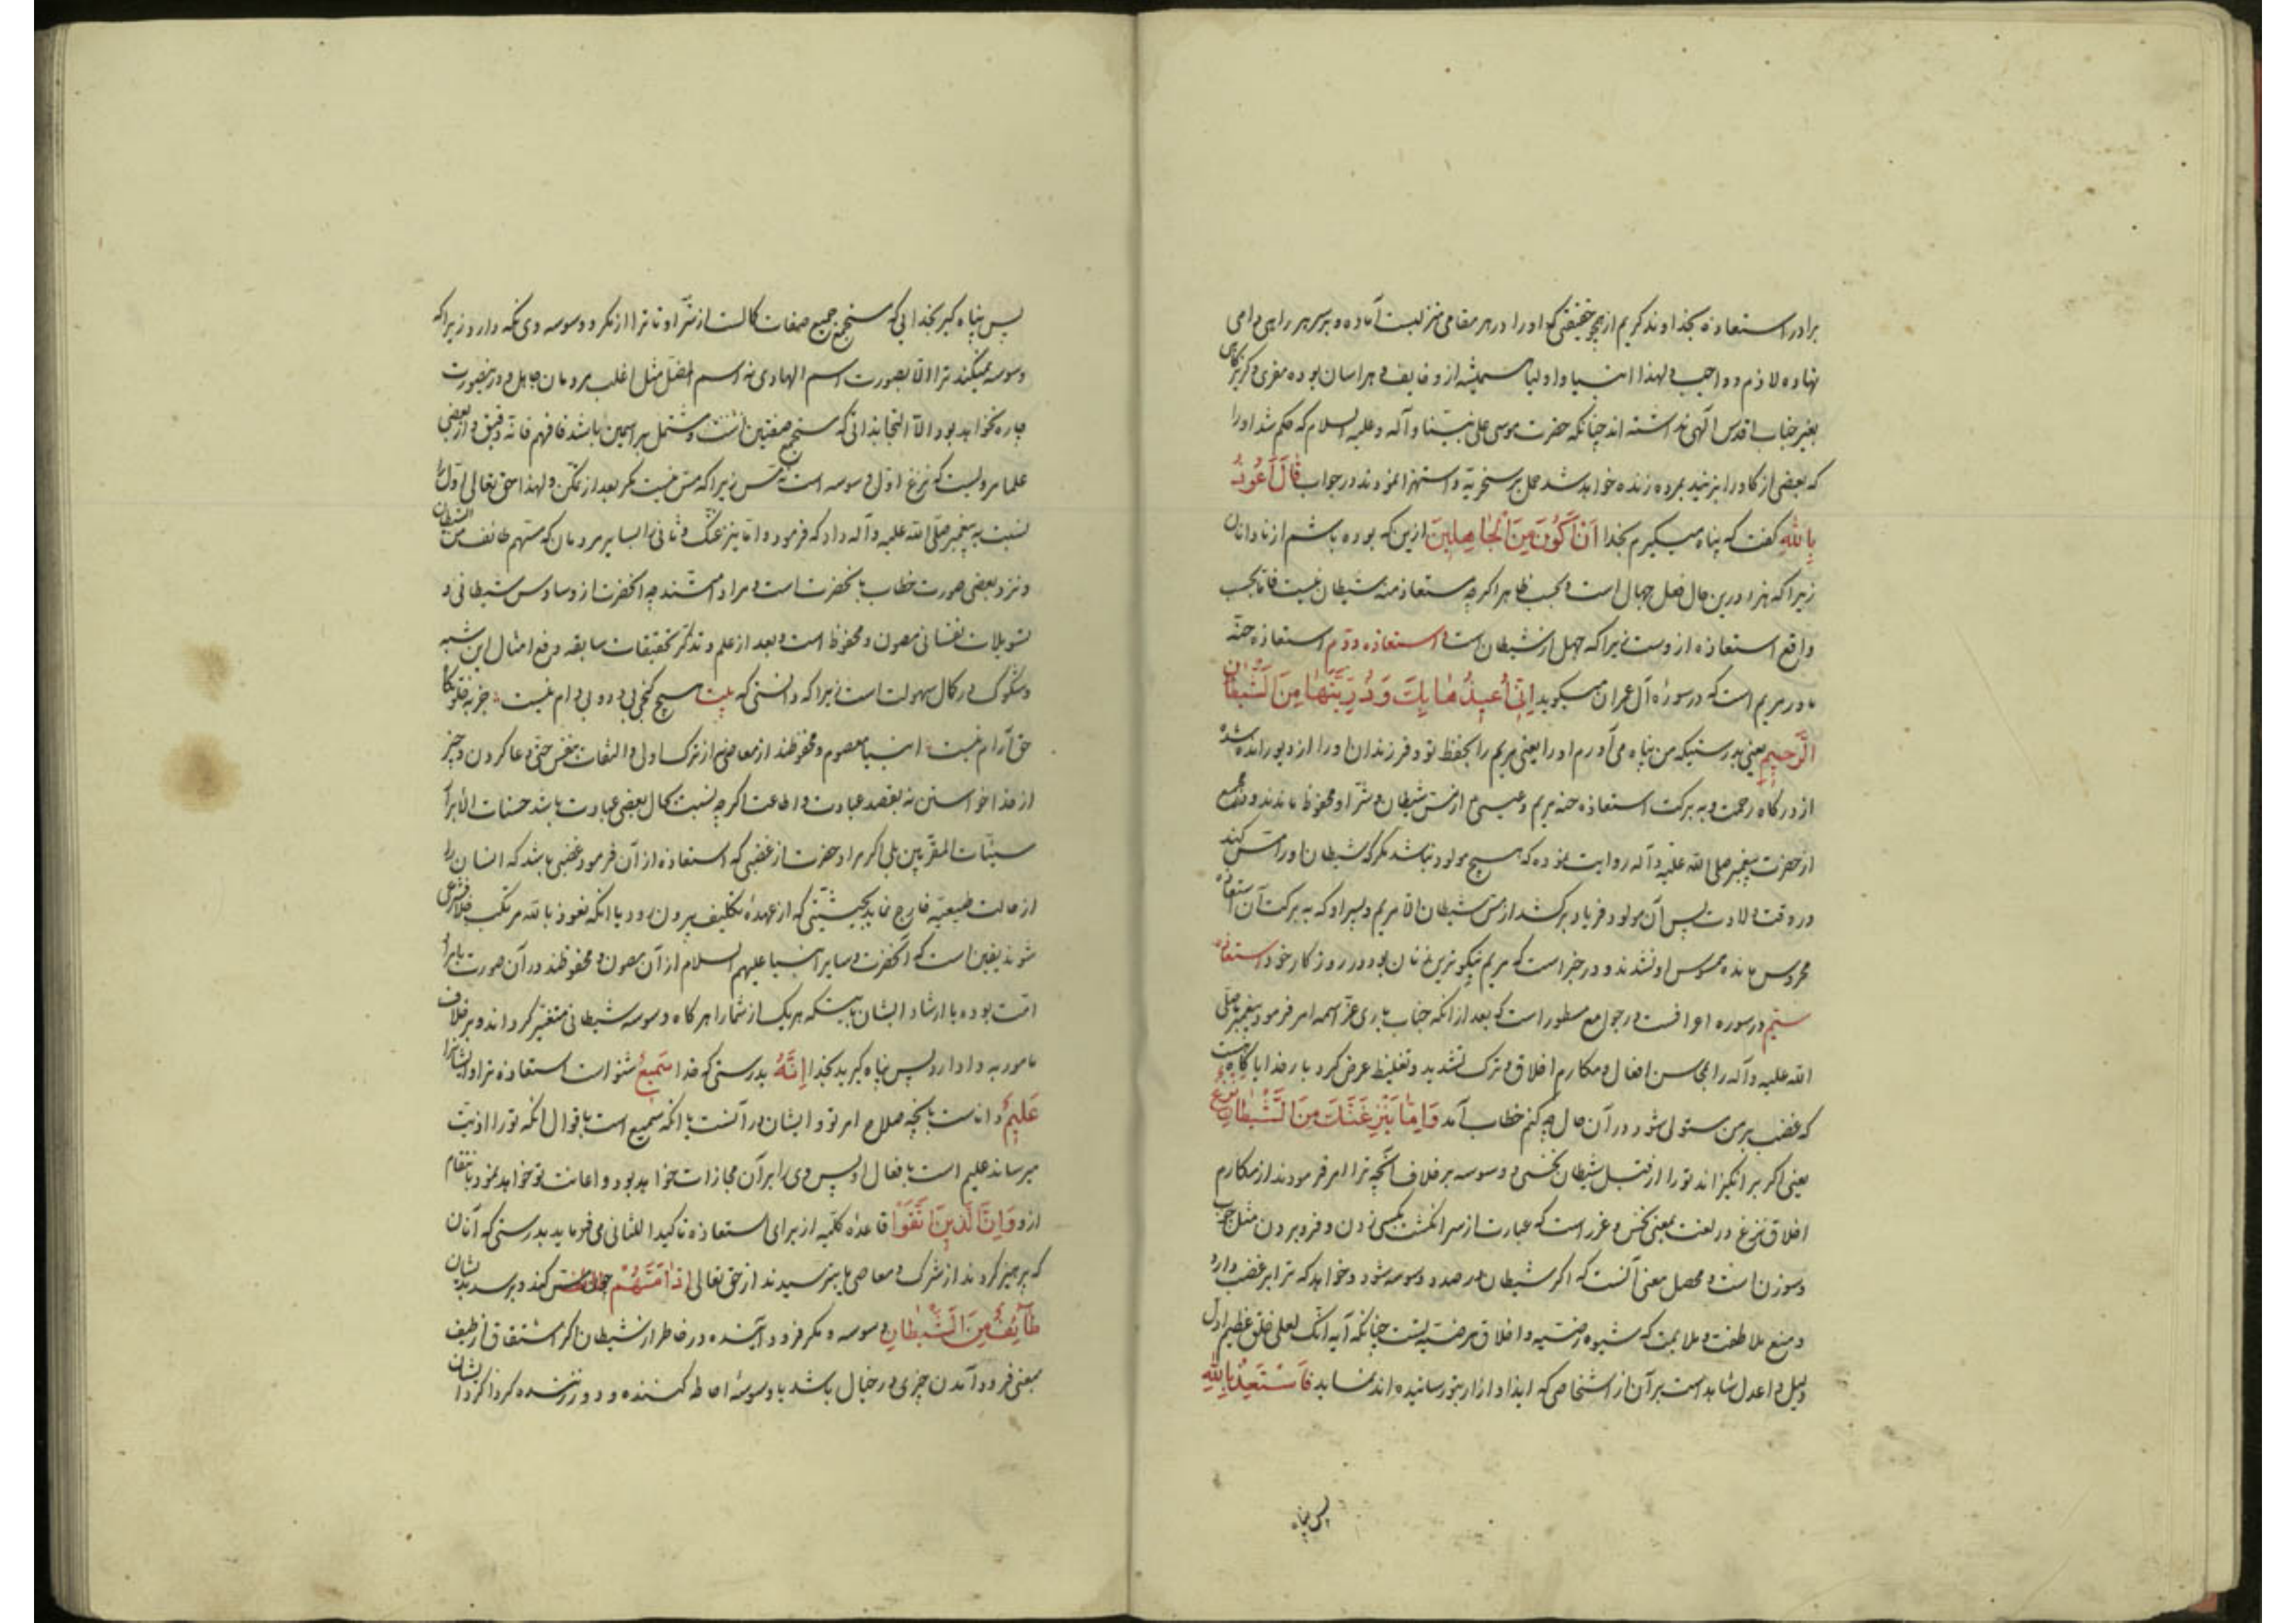 برادر استعاذه بخداوند کریم از هیچ حقیقتی که او را در هر مقامی منزلیست آماده و بر سر هر راهی دامی
نهاده لازم و واجب و لهذا انبیا و اولیا همیشه از وی خایف و هراسان بوده مفری و گریزگاهی
بغیر جناب اقدس الهی نداشته اند چنانکه حضرت موسی علی نبینا و آله و علیه السلام که حکم شد او را
که بعضی از گاو را بزنید بمرده زنده خواهد شد حمل بر سخریه و استهزا نمودند در جواب قَالَ أَعُوذُ
بِاللهِ گفت که پناه میگیرم بخدا أَنْ أَكُونَ مِنَ الْجَاهِلِينَ ازین که بوده باشم از نادانان
زیرا که هزا درین حال فعل جهال است و بحسب ظاهر اگرچه مستعاذ منه شیطان نیست فاما بحسب
واقع استعاذه ازوست زیرا که جهل از شیطان است استعاذه دوّم استعاذه حنّه
مادر مریم است که در سورهٔ آل عمران میگوید إِنِّي أُعِيذُهَا بِكَ وَذُرِّيَّتَهَا مِنَ الشَّيْطَانِ
الرَّجِيمِ یعنی بدرستیکه من پناه می آورم او را یعنی مریم را بحفظ تو و فرزندان او را از دیو رانده شده
از درگاه رحمت و به برکت استعاذه حنه مریم و عیسی از مس شیطان و شر او محفوظ ماندند و
از حضرت پیغمبر صلی الله علیه و آله روایت نموده که هیچ مولود نباشد مگر که شیطان او را مس کند
در وقت ولادت پس آن مولود فریاد برکشد از مس شیطان الا مریم و پسر او که به برکت آن استعاذه
محروس مانده ممسوس او نشدند و در خبر است که مریم نیکوترین زنان بود در روزگار خود استعاذه
سیّم در سوره اعرافست در جوامع مسطور است که بعد از آنکه جناب باری عز اسمه امر فرمود پیغمبر صلی
الله علیه و آله را بمحاسن افعال و مکارم اخلاق و ترک تشدید و تغلیظ عرض کرد بار خدایا گاه هست
که غضب بر من مستولی شود در آن حال چه کنم خطاب آمد وَإِمَّا يَنْزَغَنَّكَ مِنَ الشَّيْطَانِ نَزْغٌ
یعنی اگر برانگیزاند تو را از قبل شیطان نخسی و وسوسه بر خلاف آنچه ترا امر فرمودند از مکارم
اخلاق نزغ در لغت بمعنی نخس و غرز است که عبارت از سر انگشت بکسی زدن و فرو بردن مثل چوب
و سوزن است و محصل معنی آنست که اگر شیطان در صدد وسوسه شود و خواهد که ترا بر غضب وا دارد
و منع ملاطفت و ملایمت که شیوه رضیه و اخلاق مرضیه تست چنانکه آیه انک لعلی خلق عظیم اول
دلیل و اعدل شاهد است بر آن از اشخاصی که ایذا و آزار بتو رسانیده اند نماید فَاسْتَعِذْ بِاللهِ
پس پناه
پس پناه گیر بخدایی که مستجمع جمیع صفات کمالست از شرّ او تا ترا از مکر و وسوسه وی نگه دارد زیرا که
وسوسه میکند ترا الا بصورت اسم الهادی نه اسم المضل مثل اغلب مردمان جاهل و درینصورت
چاره نخواهد بود الا التجا بذاتی که مستجمع صفتین است و مشتمل بر اسمین باشد فافهم فانه دقیق و از بعضی
علما مرویست که نزغ اول وسوسه است و مس زیرا که مس نیست مگر بعد از تمکن و لهذا حق تعالی اول را
نسبت به پیغمبر صلی الله علیه و آله داد که فرمود و اما ینزغنک و ثانی را بسایر مردمان که مسهم طائف من الشیطان
و نزد بعضی صورت خطاب بآنحضرت است و مراد امتند چه آنحضرت از وساوس شیطانی و
تسویلات نفسانی مصون و محفوظ است و بعد از علم و تذکر تحقیقات سابقه دفع امثال این شبه
و شکوک در کمال سهولت است زیرا که دانستی که بیت هیچ کنجی بی دد و بی دام نیست ؛ جز بخلوتگاه
حق آرام نیست ؛ انبیا معصوم و محفوظند از معاصی از ترک اولی و التفات بنفس حتی دعا کردن و چیز
از خدا خواستن نه بقصد عبادت و اطاعت اگرچه نسبت بحال بعضی عبادت باشد حسنات الابرار
سیئات المقربین بلی اگر مراد حضرت از غضبی که استعاذه از آن فرمود غضبی باشد که انسان را
از حالت طبیعیه خارج نماید بحیثیتی که از عهدهٔ تکلیف بیرون رود یا آنکه نعوذ بالله مرتکب خلاف شرعی
شوند یقین است که آنحضرت و سایر انبیا علیهم السلام از آن مصون و محفوظند در آن صورت یا مراد
امت بوده یا ارشاد ایشان باینکه هر یک از شما را هر گاه وسوسه شیطانی متغیر گرداند و بر خلاف
مامور به وا دارد پس پناه گیرید بخدا إِنَّهُ بدرستی که خدا سَمِيعٌ شنواست استعاذه ترا و ایشانرا
عَلِيمٌ داناست بآنچه صلاح امر تو و ایشان در آنست یا آنکه سمیع است باقوال آنکه تو را اذیت
میرساند علیم است بافعال او پس وی را بر آن مجازات خواهد بود و اعانت تو خواهد نمود بانتقام
از و إِنَّ الَّذِينَ اتَّقَوْا قاعدهٔ کلیه از برای استعاذه تاکیدا للثانی می فرماید بدرستی که آنان
که پرهیز کردند از شرک و معاصی یا بترسیدند از حق تعالی إِذَا مَسَّهُمْ چون مس کند و برسد بدیشان
طَائِفٌ مِنَ الشَّيْطَانِ وسوسه و مکر فرود آینده در خاطر از شیطان اگر اشتقاق از طیف
بمعنی فرود آمدن چیزی در خیال باشد یا وسوسهٔ احاطه کننده و دور زننده گرداگرد ایشان